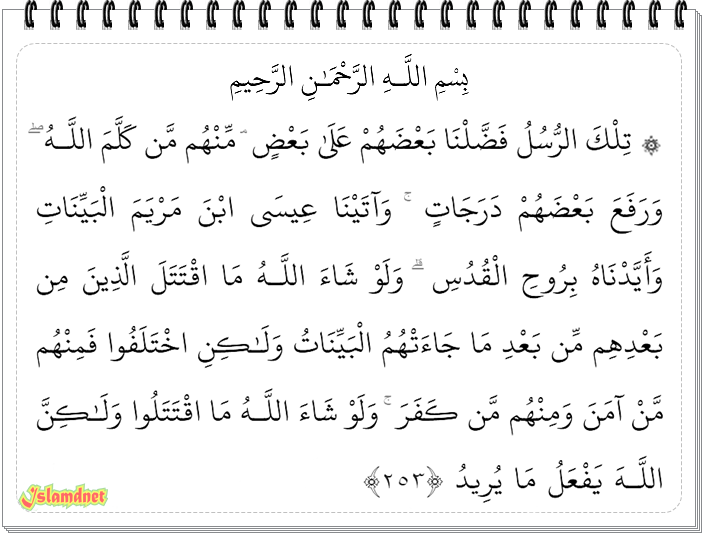 بِسْمِ اللَّـهِ الرَّحْمَـٰنِ الرَّحِيمِ
۞ تِلْكَ الرُّسُلُ فَضَّلْنَا بَعْضَهُمْ عَلَىٰ بَعْضٍ ۘ مِّنْهُم مَّن كَلَّمَ اللَّـهُ ۖ
وَرَفَعَ بَعْضَهُمْ دَرَجَاتٍ ۚ وَآتَيْنَا عِيسَى ابْنَ مَرْيَمَ الْبَيِّنَاتِ
وَأَيَّدْنَاهُ بِرُوحِ الْقُدُسِ ۗ وَلَوْ شَاءَ اللَّـهُ مَا اقْتَتَلَ الَّذِينَ مِن
بَعْدِهِم مِّن بَعْدِ مَا جَاءَتْهُمُ الْبَيِّنَاتُ وَلَـٰكِنِ اخْتَلَفُوا فَمِنْهُم
مَّنْ آمَنَ وَمِنْهُم مَّن كَفَرَ ۚ وَلَوْ شَاءَ اللَّـهُ مَا اقْتَتَلُوا وَلَـٰكِنَّ
اللَّـهَ يَفْعَلُ مَا يُرِيدُ ﴿٢٥٣﴾
Islamdnet